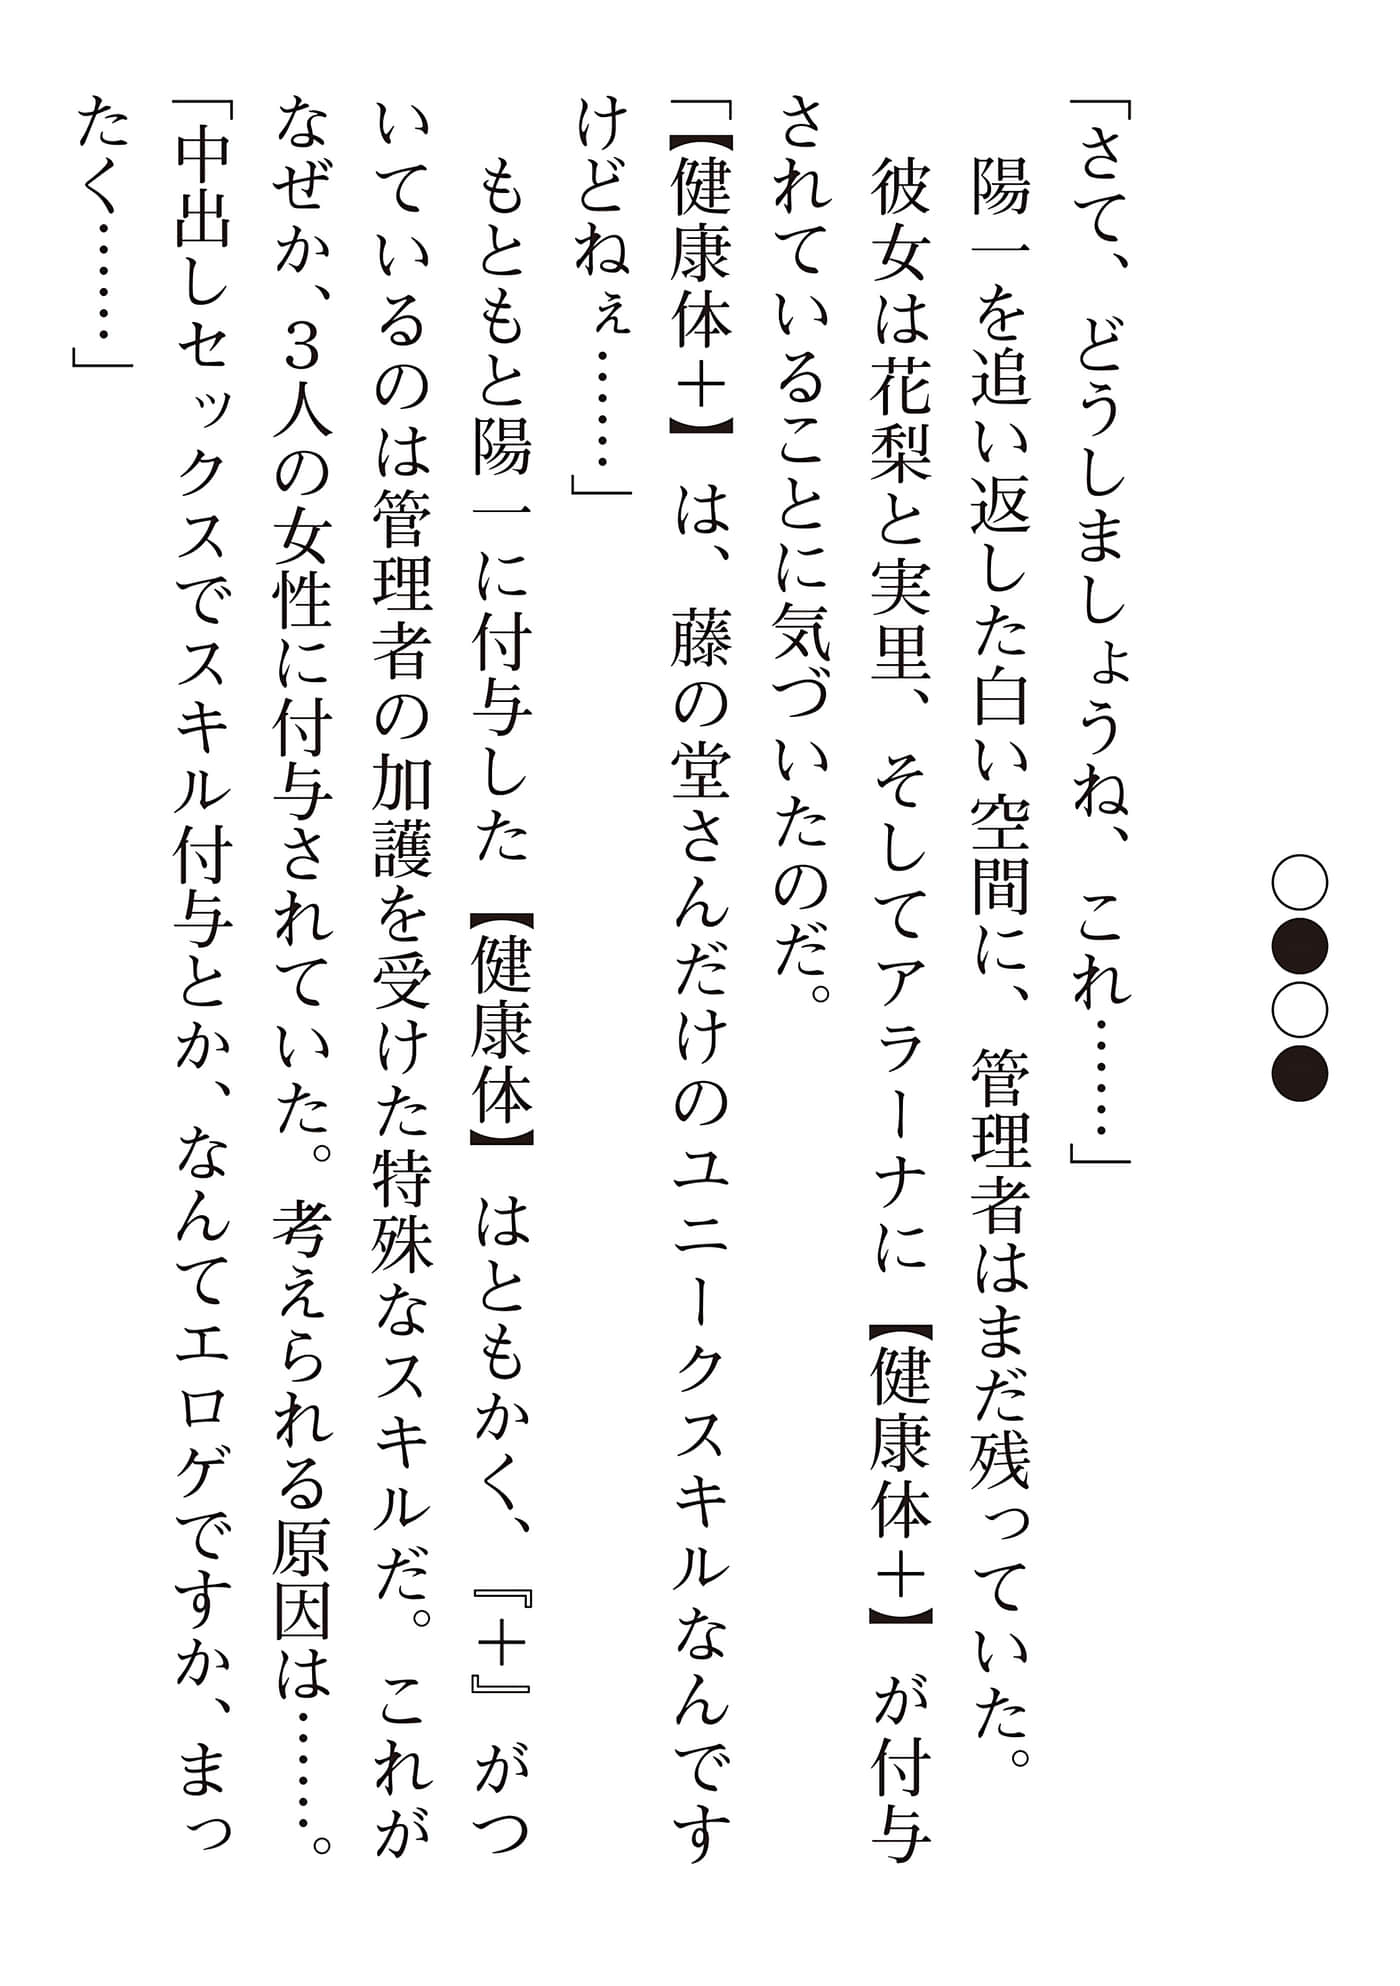 ○●○●
「さて、どうしましょうね、これ……」
陽一を追い返した白い空間に、管理者はまだ残っていた。
彼女は花梨と実里、そしてアラーナに【健康体＋】が付与
されていることに気づいたのだ。
「【健康体＋】は、藤の堂さんだけのユニークスキルなんです
けどねぇ……」
もともと陽一に付与した【健康体】はともかく、『＋』がつ
いているのは管理者の加護を受けた特殊なスキルだ。これが
なぜか、３人の女性に付与されていた。考えられる原因は……。
「中出しセックスでスキル付与とか、なんてエロゲですか、まっ
たく……」